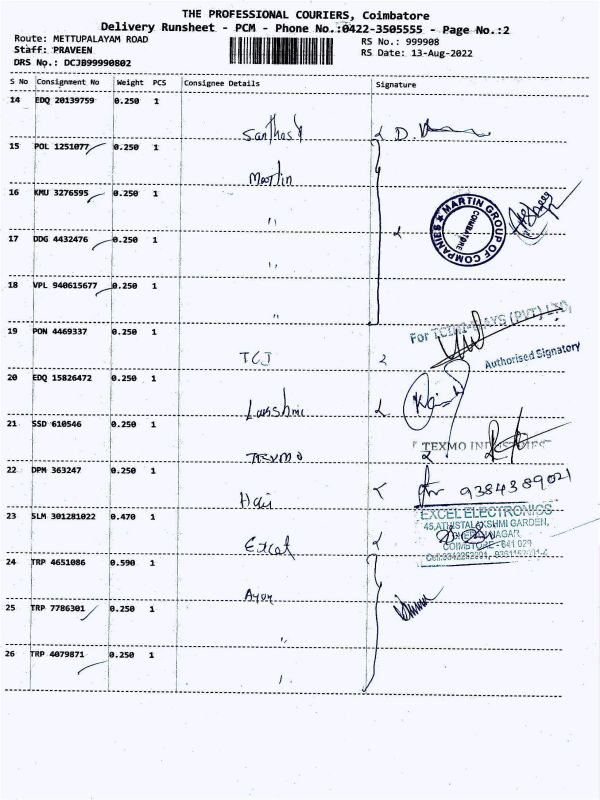 THE PROFESSIONAL COURIERS, Coimbatore
Delivery Runsheet - PCM - Phone No.:0422-3505555 - Page No.:2
Route: METTUPALAYAM ROAD
RS No.: 999908
Staff: PRAVEEN
RS Date: 13-Aug-2022
DRS No.: DCJB99990802
S No Consignment No Weight PCS Consignee Details Signature
14 EDQ 20139759 0.250 1
Santhosh
15 POL 1251077 0.250 1
Martin
16 KMU 3276595 0.250 1
"
MARTIN GROUP OF COMPANIES
COIMBATORE
17 DDG 4432476 0.250 1
"
18 VPL 940615677 0.250 1
"
19 PON 4469337 0.250 1
TCI
Authorised Signatory
20 EDQ 15826472 0.250 1
Lakshmi
21 SSD 610546 0.250 1
TEXMO
TEXMO INDUSTRIES
22 DPM 363247 0.250 1
Hari
9384389021
23 SLM 301281022 0.470 1
Excel
EXCEL ELECTRONICS
GARDEN,
NAGAR,
COIMBTORE - 641 029
24 TRP 4651086 0.590 1
25 TRP 7786301 0.250 1
"
26 TRP 4079871 0.250 1